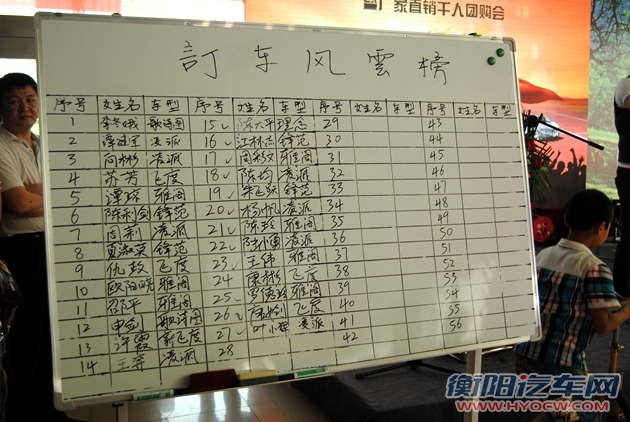 厂家直销千人团购会
訂车风雲榜
序号 姓名 车型 序号 姓名 车型 序号 姓名 车型 序号 姓名 车型
1 李冬娥 歌诗图 15 陈大平 理念 29 43
2 凌派 16 江林 锋范 30 44
3 向彬 凌派 17 周 雅阁 31 45
4 苏芳 飞度 18 陈均 凌派 32 46
5 谭琛 雅阁 19 朱 锋范 33 47
6 陈利剑 锋范 20 杨帆 凌派 34 48
7 周利 凌派 21 陈玲 雅阁 35 49
8 锋范 22 凌派 36 50
9 仇政 飞度 23 王伟 雅阁 37 51
10 欧阳 雅阁 24 康彬 飞度 38 52
11 邵平 雅阁 25 雅阁 39 53
12 申剑 歌诗图 26 飞度 40 54
13 许霞 新飞度 27 叶小 凌派 41 55
14 王萍 凌派 28 42 56
衡阳汽车网
WWW.HYQCW.COM